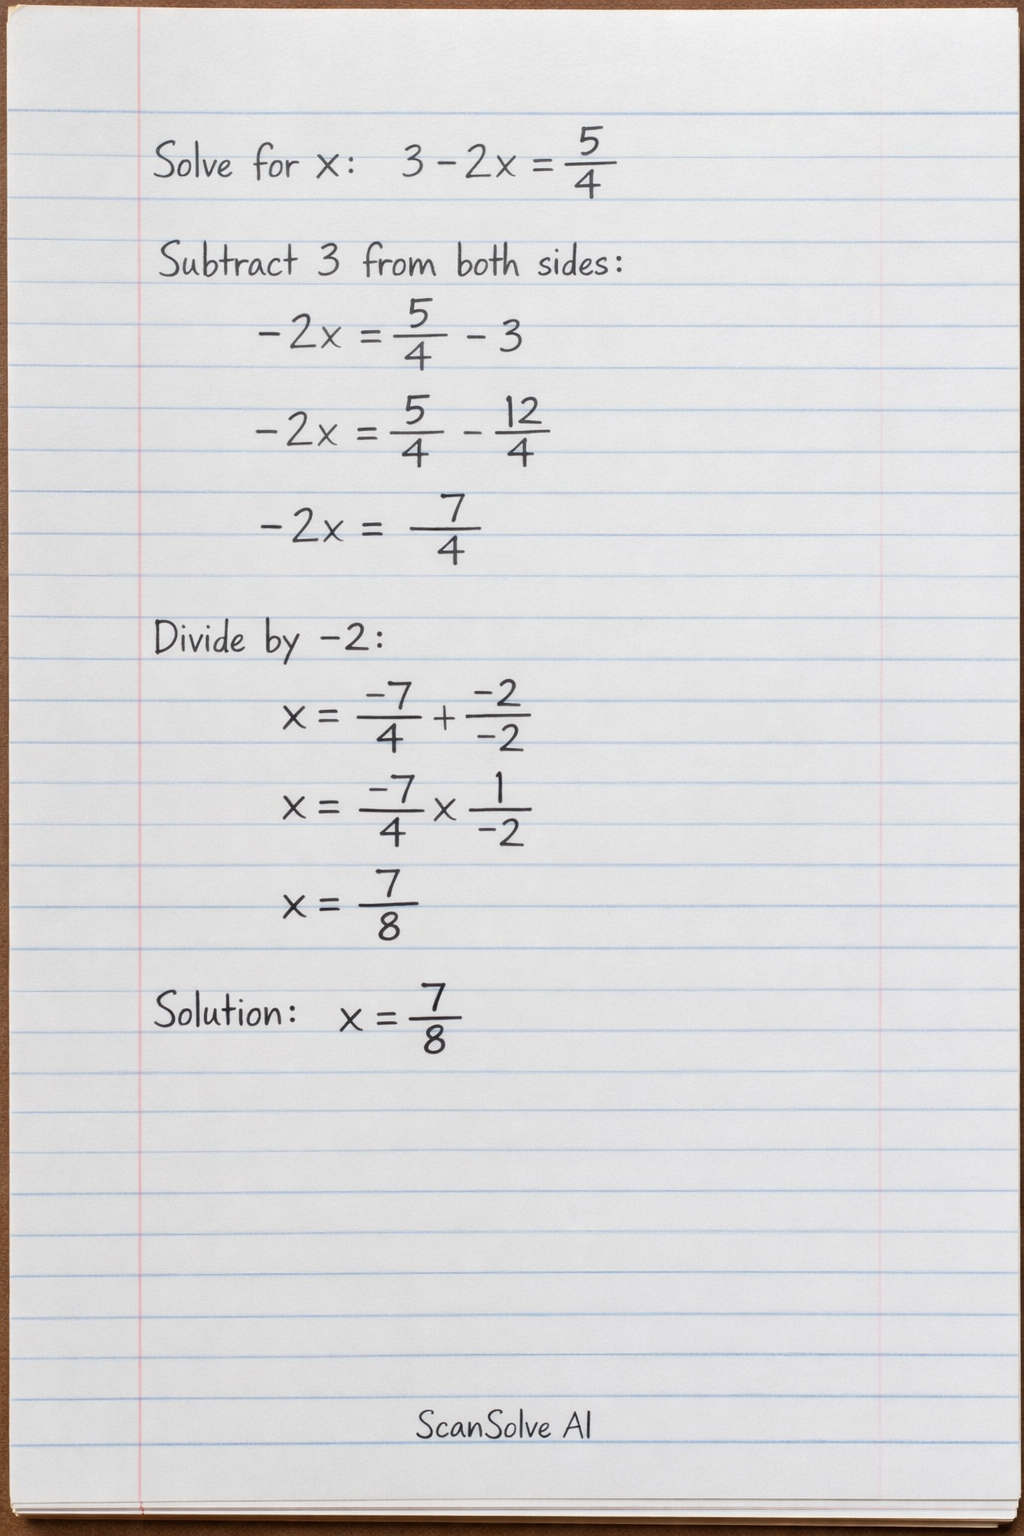 Solve for x: 3 - 2x = 5/4
Subtract 3 from both sides:
-2x = 5/4 - 3
-2x = 5/4 - 12/4
-2x = 7/4
Divide by -2:
x = -7/4 + -2/-2
x = -7/4 x 1/-2
x = 7/8
Solution: x = 7/8
ScanSolve AI